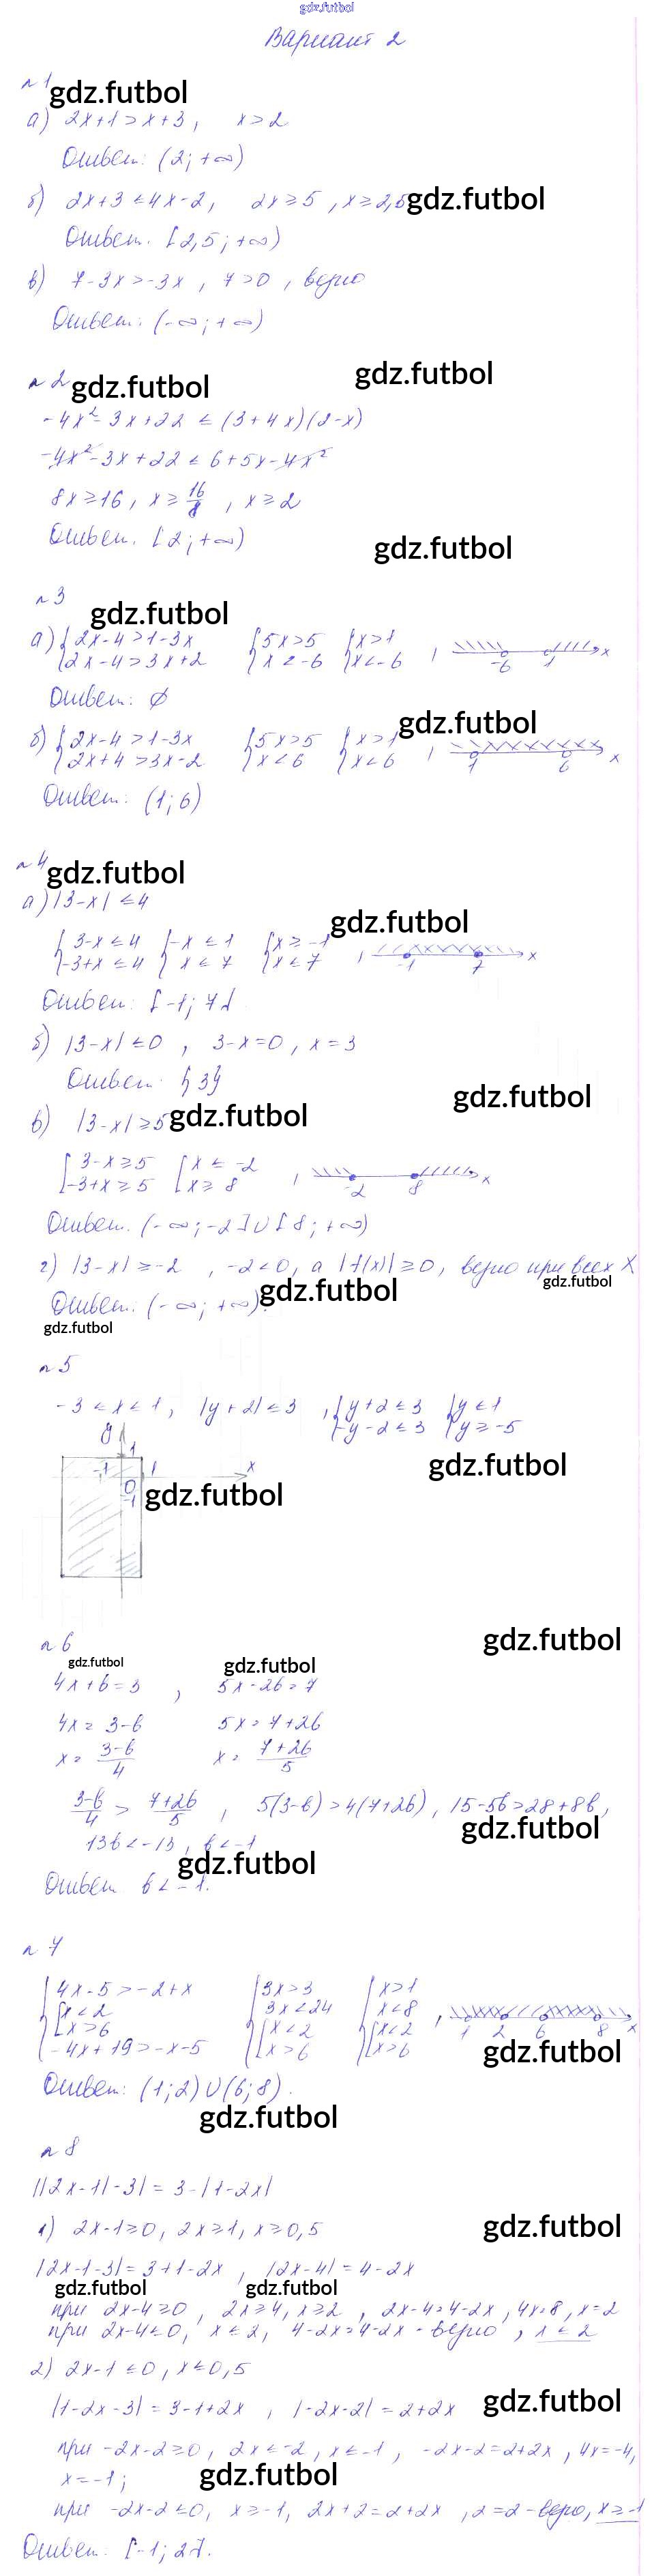 gdz.futbol
Вариант 2
n 1
gdz.futbol
а) 2x+1 > x+3, x>2
Ответ: (2; +∞)
б) 2x+3 ≤ 4x-2, 2x ≥ 5, x ≥ 2,5
gdz.futbol
Ответ. [2,5; +∞)
в) 7-3x > -3x, 7>0, верно
Ответ: (-∞; +∞)
gdz.futbol
n 2
gdz.futbol
-4x² - 3x + 22 ≤ (3+4x)(2-x)
-4x² - 3x + 22 ≤ 6+5x-4x²
8x ≥ 16, x ≥ 16/8, x ≥ 2
Ответ. [2; +∞)
gdz.futbol
n 3
gdz.futbol
а) { 2x-4 > 1-3x { 5x > 5 { x > 1
{ 2x-4 > 3x+2 { x < -6 { x < -6 , -6 1 x
Ответ: ∅
gdz.futbol
б) { 2x-4 > 1-3x { 5x > 5 { x > 1
{ 2x+4 > 3x-2 { x < 6 { x < 6 , 1 6 x
Ответ: (1; 6)
n 4
gdz.futbol
а) |3-x| ≤ 4
gdz.futbol
{ 3-x ≤ 4 { -x ≤ 1 { x ≥ -1
{ -3+x ≤ 4 { x ≤ 7 { x ≤ 7 , -1 7 x
Ответ: [-1; 7].
б) |3-x| ≤ 0, 3-x=0, x=3
Ответ. {3}
gdz.futbol
в) |3-x| ≥ 5
gdz.futbol
[ 3-x ≥ 5 [ x ≤ -2
[ -3+x ≥ 5 [ x ≥ 8 , -2 8 x
Ответ. (-∞; -2] ∪ [8; +∞)
г) |3-x| ≥ -2, -2<0, а |f(x)| ≥ 0, верно при всех x
gdz.futbol
gdz.futbol
Ответ. (-∞; +∞).
gdz.futbol
n 5
-3 < x < 1, |y+2| ≤ 3, { y+2 ≤ 3 { y ≤ 1
{ -y-2 ≤ 3 { y ≥ -5
y 1
-1 1 x
0
-1
gdz.futbol
gdz.futbol
n 6
gdz.futbol
gdz.futbol
gdz.futbol
4x+b=3, 5x-2b=7
4x = 3-b 5x = 7+2b
x = (3-b)/4 x = (7+2b)/5
(3-b)/4 > (7+2b)/5, 5(3-b) > 4(7+2b), 15-5b > 28+8b,
gdz.futbol
13b < -13, b < -1
gdz.futbol
Ответ b < -1.
n 7
{ 4x-5 > -2+x { 3x > 3 { x > 1
{ [ x < 2 { 3x < 24 { x < 8
{ [ x > 6 { [ x < 2 { [ x < 2 , 1 2 6 8 x
{ -4x+19 > -x-5 { [ x > 6 { [ x > 6
gdz.futbol
Ответ: (1; 2) ∪ (6; 8).
gdz.futbol
n 8
||2x-1|-3| = 3-|1-2x|
1) 2x-1 ≥ 0, 2x ≥ 1, x ≥ 0,5
gdz.futbol
|2x-1-3| = 3+1-2x, |2x-4| = 4-2x
gdz.futbol
gdz.futbol
при 2x-4 ≥ 0, 2x ≥ 4, x ≥ 2, 2x-4 = 4-2x, 4x=8, x=2
при 2x-4 ≤ 0, x ≤ 2, 4-2x = 4-2x - верно, x ≤ 2
2) 2x-1 ≤ 0, x ≤ 0,5
|1-2x-3| = 3-1+2x, |-2x-2| = 2+2x
gdz.futbol
при -2x-2 ≥ 0, 2x ≤ -2, x ≤ -1, -2x-2 = 2+2x, 4x=-4,
x=-1;
gdz.futbol
при -2x-2 ≤ 0, x ≥ -1, 2x+2 = 2+2x, 2=2 - верно, x ≥ -1
Ответ: [-1; 2].